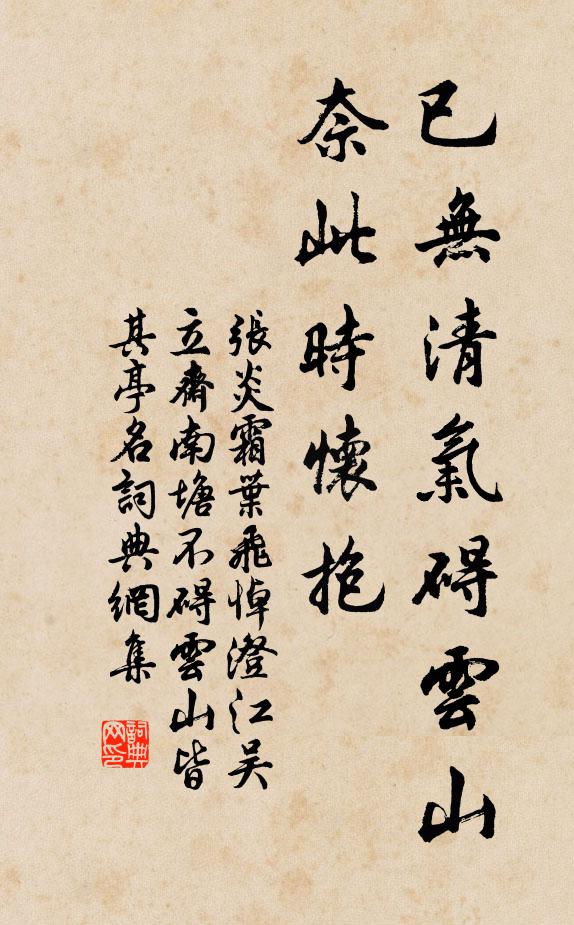 已無清氣碍雲山
奈此時懷抱
張炎霜葉飛悼澄江吴
立齋南塘不碍雲山皆
其亭名詞典網集
詞典
网印